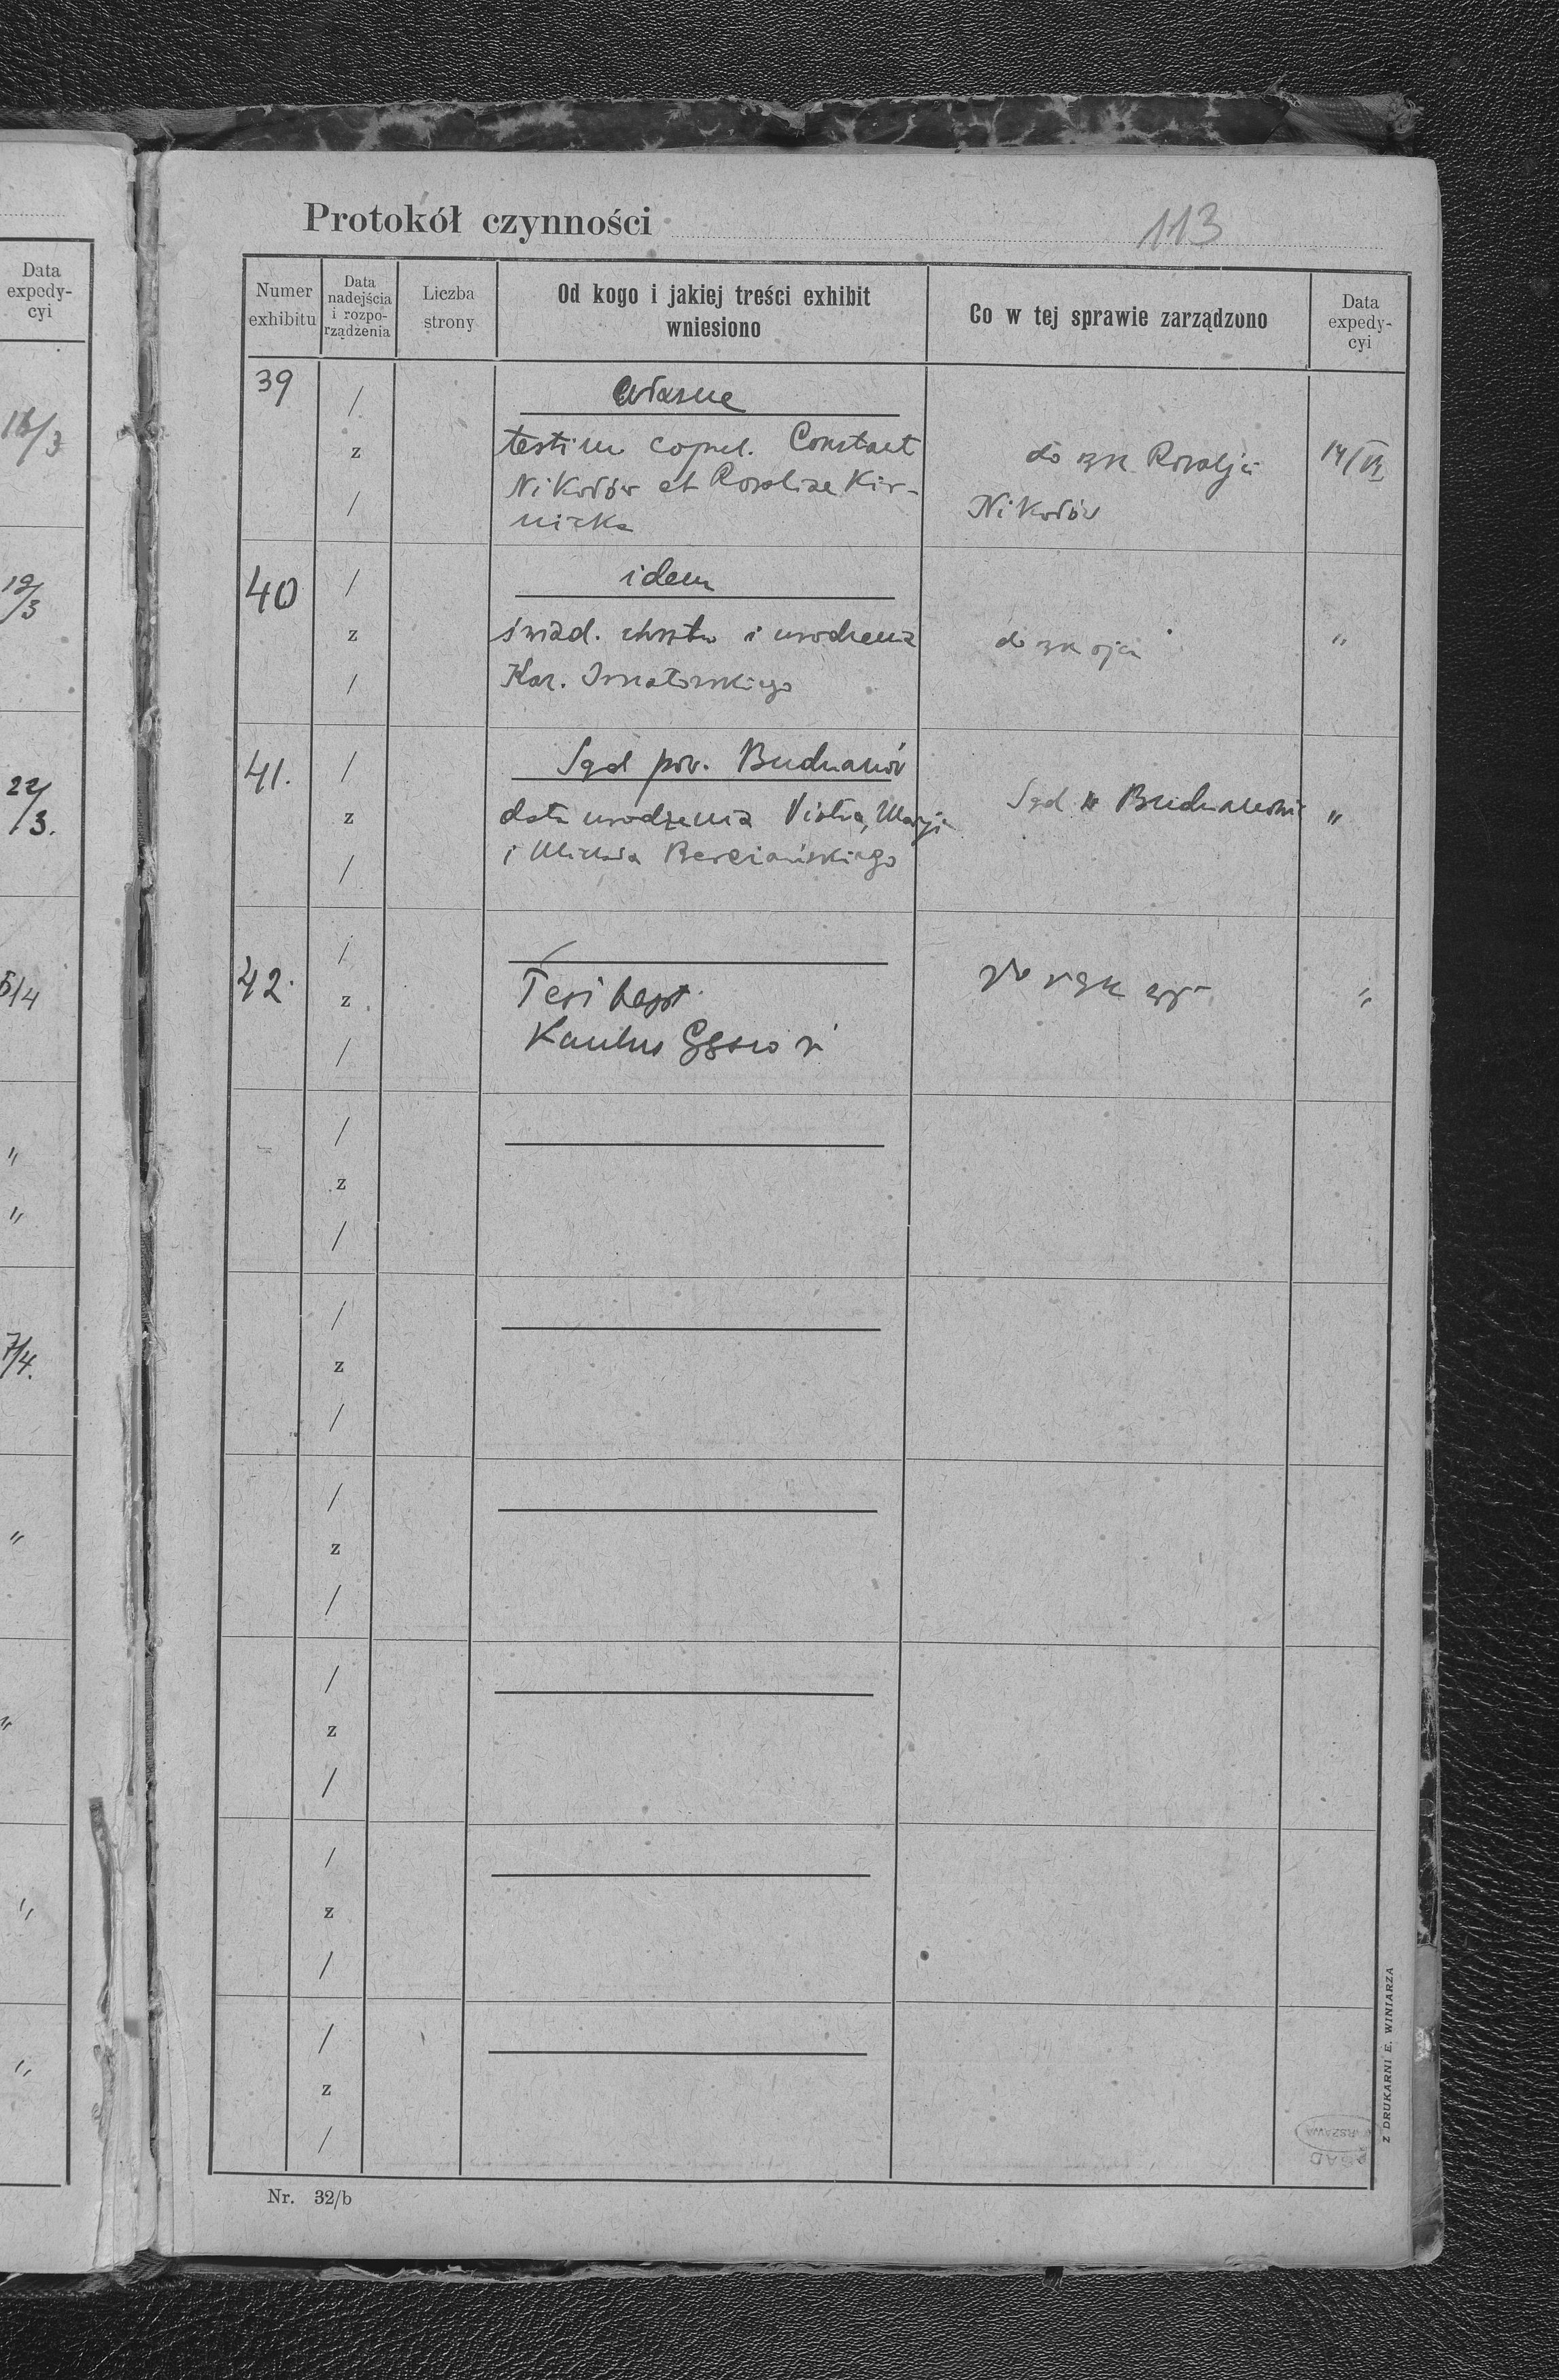 Data
expedy-
cyi
12/3
22/3.
5/4
"
"
7/4.
"
"
"
"
Protokół czynności
113
Numer
exhibitu
Data
nadejścia
i rozpo-
rządzenia
Liczba
strony
Od kogo i jakiej treści exhibit
wniesiono
Co w tej sprawie zarządzono
Data
expedy-
cyi
39
/
z
/
własne
testim copul. Constant
Nikołów et Rozaliae Kir-
nicka
do rąk Rozalji
Nikołów
14/VI
40
/
z
/
idem
świad. chrztu i urodzenia
Kaz.
do rąk ojca
"
41.
/
z
/
Sąd pow. Budzanów
data urodzenia Piotra, Marji
i Michała
Sąd w Budzanowie
"
42.
/
z
/
Test bapt.
do rąk
"
/
z
/
/
z
/
/
z
/
/
z
/
/
z
/
/
z
/
Z DRUKARNI E. WINIARZA
AGAD
WARSZAWA
Nr. 32/b